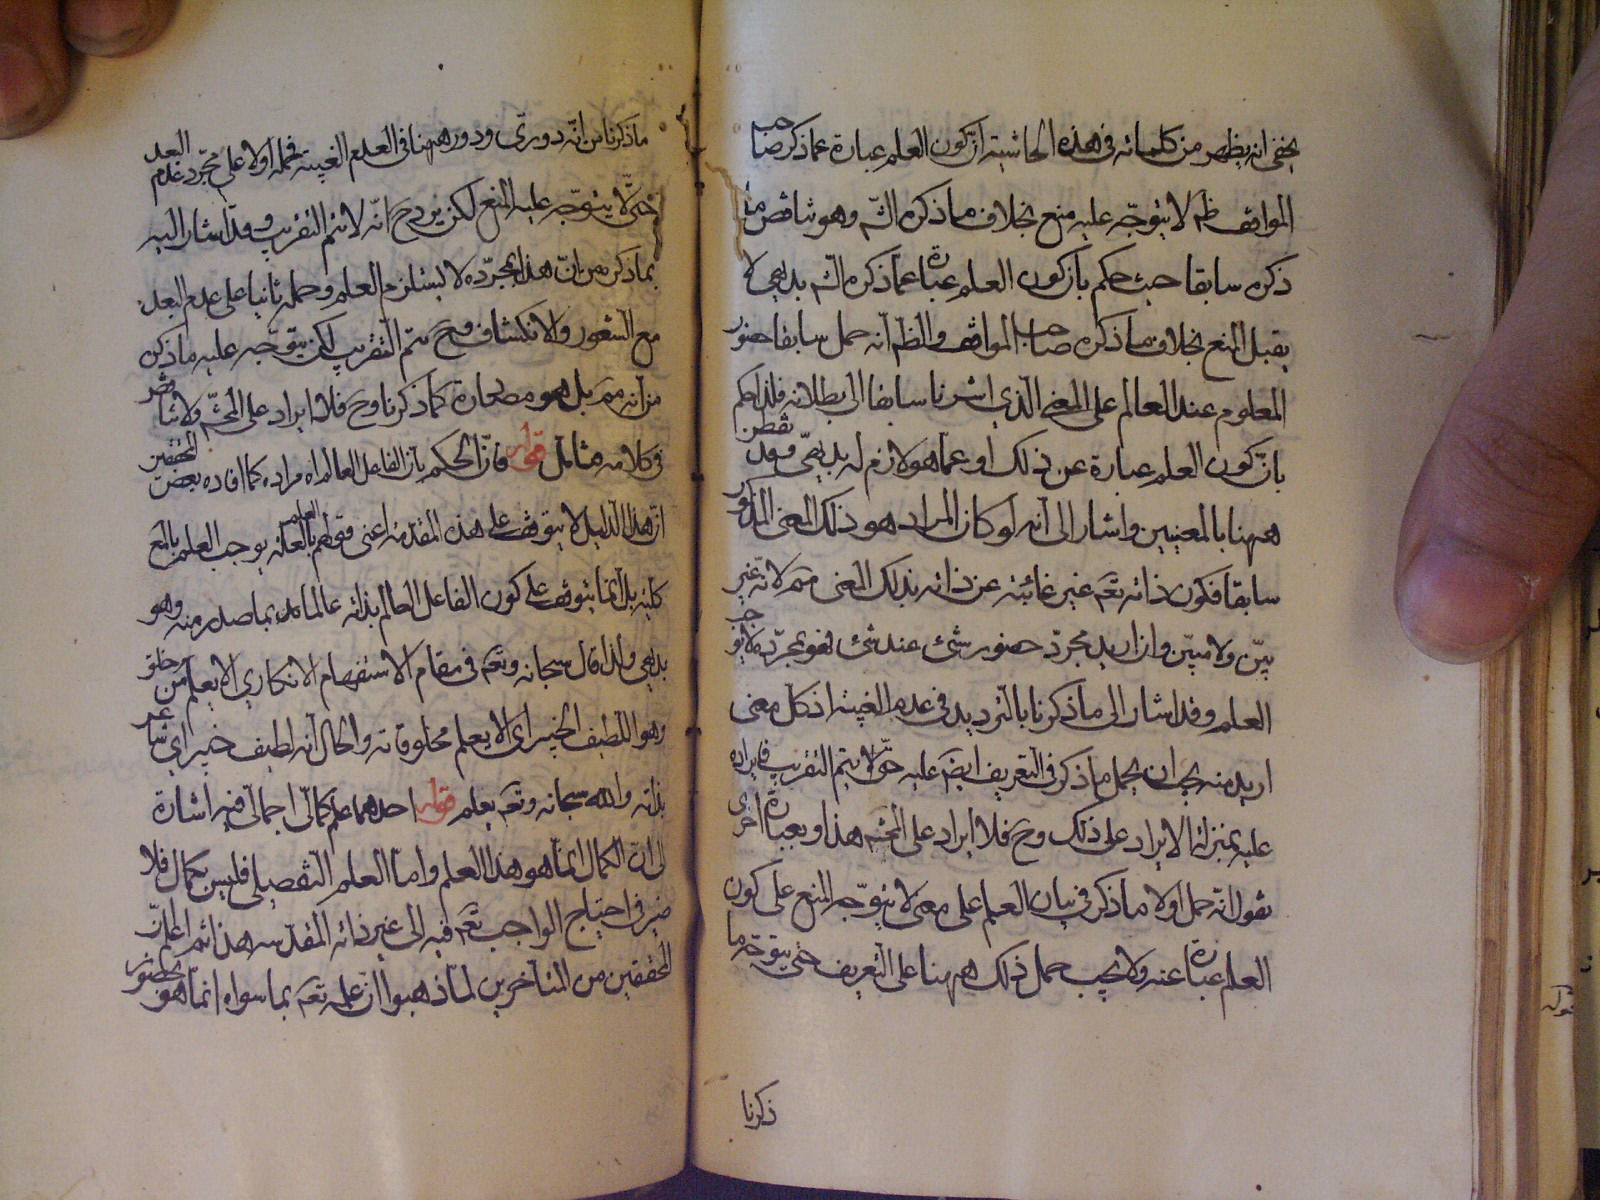 يخفى انه يظهر من كلماته فى هذه الحاشية ان كون العلم عبارة عما ذكر صاحب
المواقف ظم لا يتوجّه عليه منع بخلاف ما ذكره الشّم وهو يناقض ما
ذكره سابقا حيث حكم بان كون العلم عبارة عما ذكره الشم بديهى لا
يقبل المنع بخلاف ما ذكره صاحب المواقف والظم انّه حمل سابقا حضور
المعلوم عند العالم على المعنى الذي اشرنا سابقا الى بطلانه فلذا حكم
بانّ كون العلم عبارة عن ذلك او عما هو لازم له بديهىّ وقد نقض
ههنا بالمعنيين واشار الى انّه لو كان المراد هو ذلك المعنى المذكور
سابقا فكون ذاته تعم غير غائبة عن ذاته بذلك المعنى مم لانه غير
بيّن ولا مبيّن وان اريد مجرّد حضور شئ عند شئ فهو بمجرّده لا يوجب
العلم وقد اشار الى ما ذكرنا بالترديد فى عدم الغيبة اذ كل معنى
اريد منه يجب ان يحمل ما ذكر فى التعريف ايضم عليه حتّى يتم التقريب فايراده
عليه بمنزلة الايراد على ذلك وح فلا ايراد على المحشّم هذا وبعبارة اخرى
نقول انّه حمل اولا ما ذكر فى بيان العلم على معنى لا يتوجّه المنع على كون
العلم عبارة عنه ولا يجب حمل ذلك ههنا على التعريف حتّى يتوجّه ما
ذكرنا
ما ذكرنا من انّه دورىّ ودور ههنا فى العدم الغيبة فحمله اولا على مجرّد عدم البعد
حتّى لا يتوجّه عليه المنع لكن يرد ح انّه لا يتم التقريب وقد اشار اليه
بما ذكره من انّ هذا بمجرّده لا يستلزم العلم وحمله ثانيا على عدم البعد
مع الشعور والانكشاف وح يتم التقريب لكن يتوجّه عليه ما ذكره
من انه مم بل هو مصادرة كما ذكرنا وح فلا ايراد على المحشّم ولا تناقض
فى كلامه فتامل قوله فانّ الحكم بان الفاعل العالم اه مراده كما افاده بعض المحققين
انّ هذا الدليل لا يتوقف على هذه المقدمة اعنى قولهم العلم بالعلة يوجب العلم بالمع
كلية بل انما يتوقف على كون الفاعل العالم بذاته عالما بما صدر منه وهو
بديهى ولذا قال سبحانه وتعم فى مقام الاستفهام الانكاري الا يعلم من خلق
وهو اللطيف الخبير اى الا يعلم مخلوقاته والحال انه لطيف خبير اي عالم
بذاته والله سبحانه وتعم يعلم قوله احدهما علم كمالىّ اجمالى فيه اشارة
الى انّ الكمال انما هو هذا العلم وامّا العلم التفصيلى فليس بكمال فلا
ضير فى احتياج الواجب تعم فيه الى غير ذاته المقدسه هذا ثم اعلم انّ
المحققين من المتأخرين لمّا ذهبوا الى انّ علمه تعم بما سواه انما هو حضور